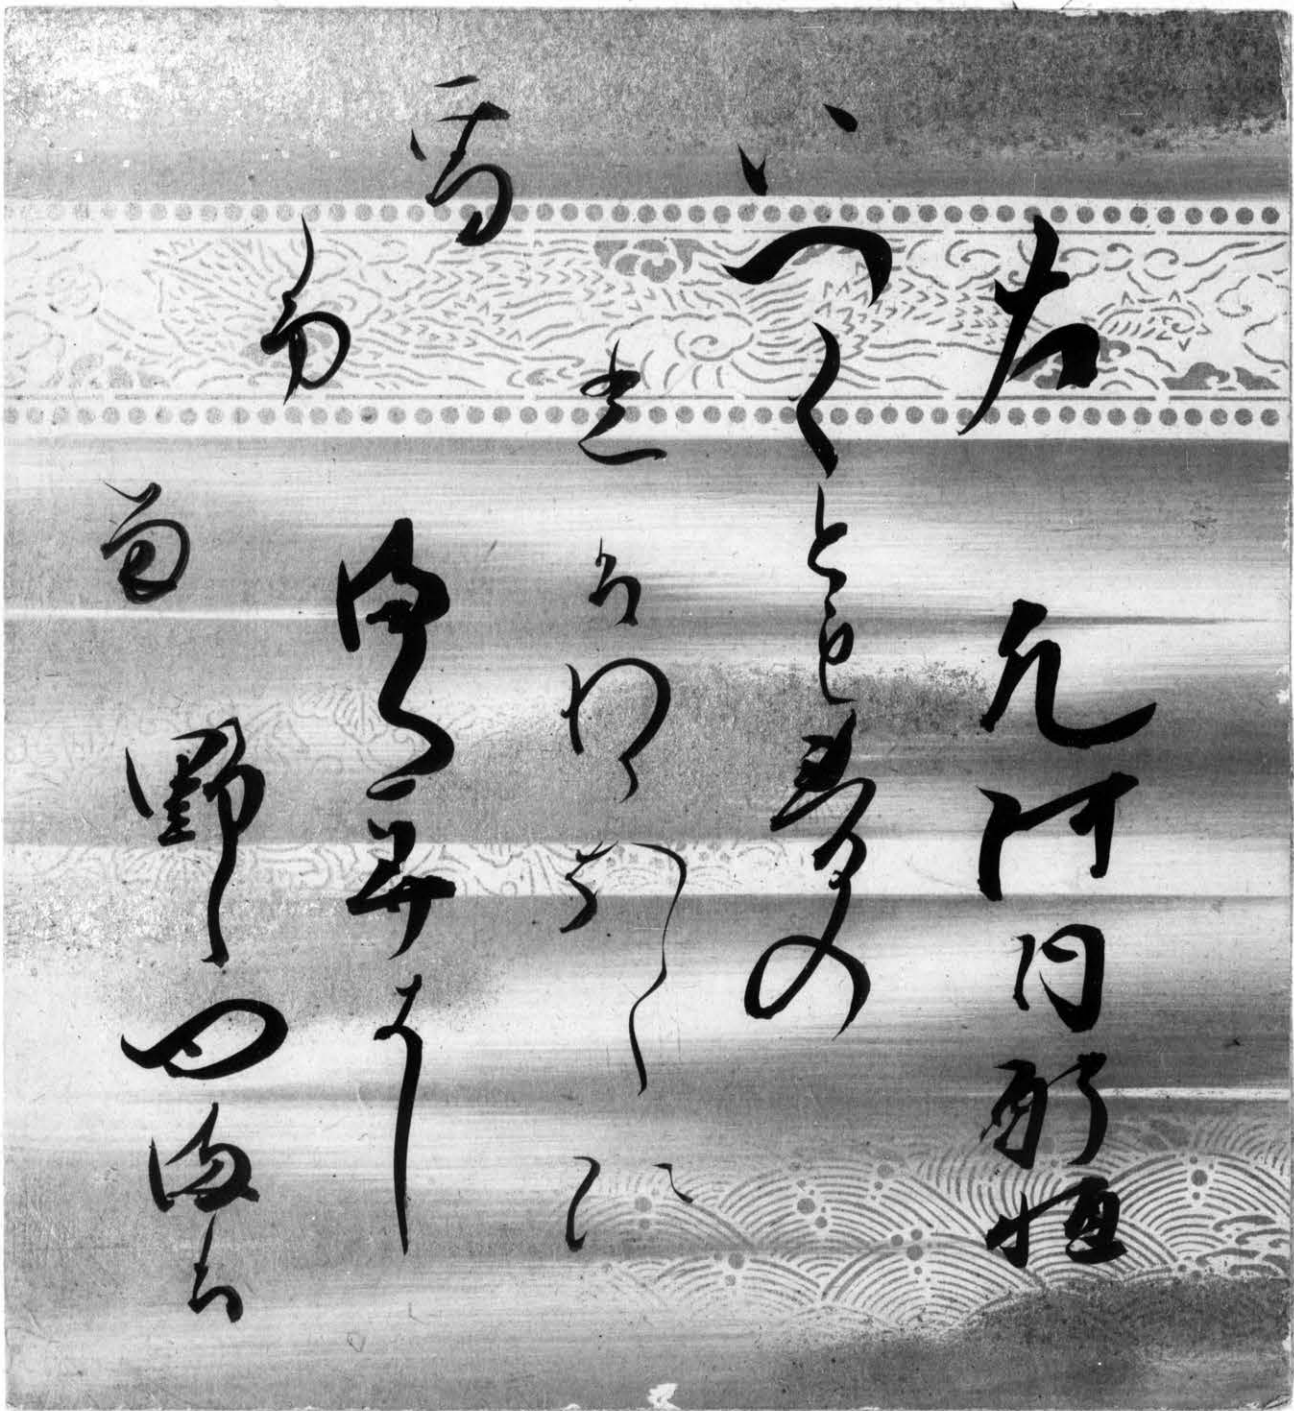 右 凡河内躬恒
いつくとも春の
光はわかなくに
またみよし
野のやまは
雪ふる